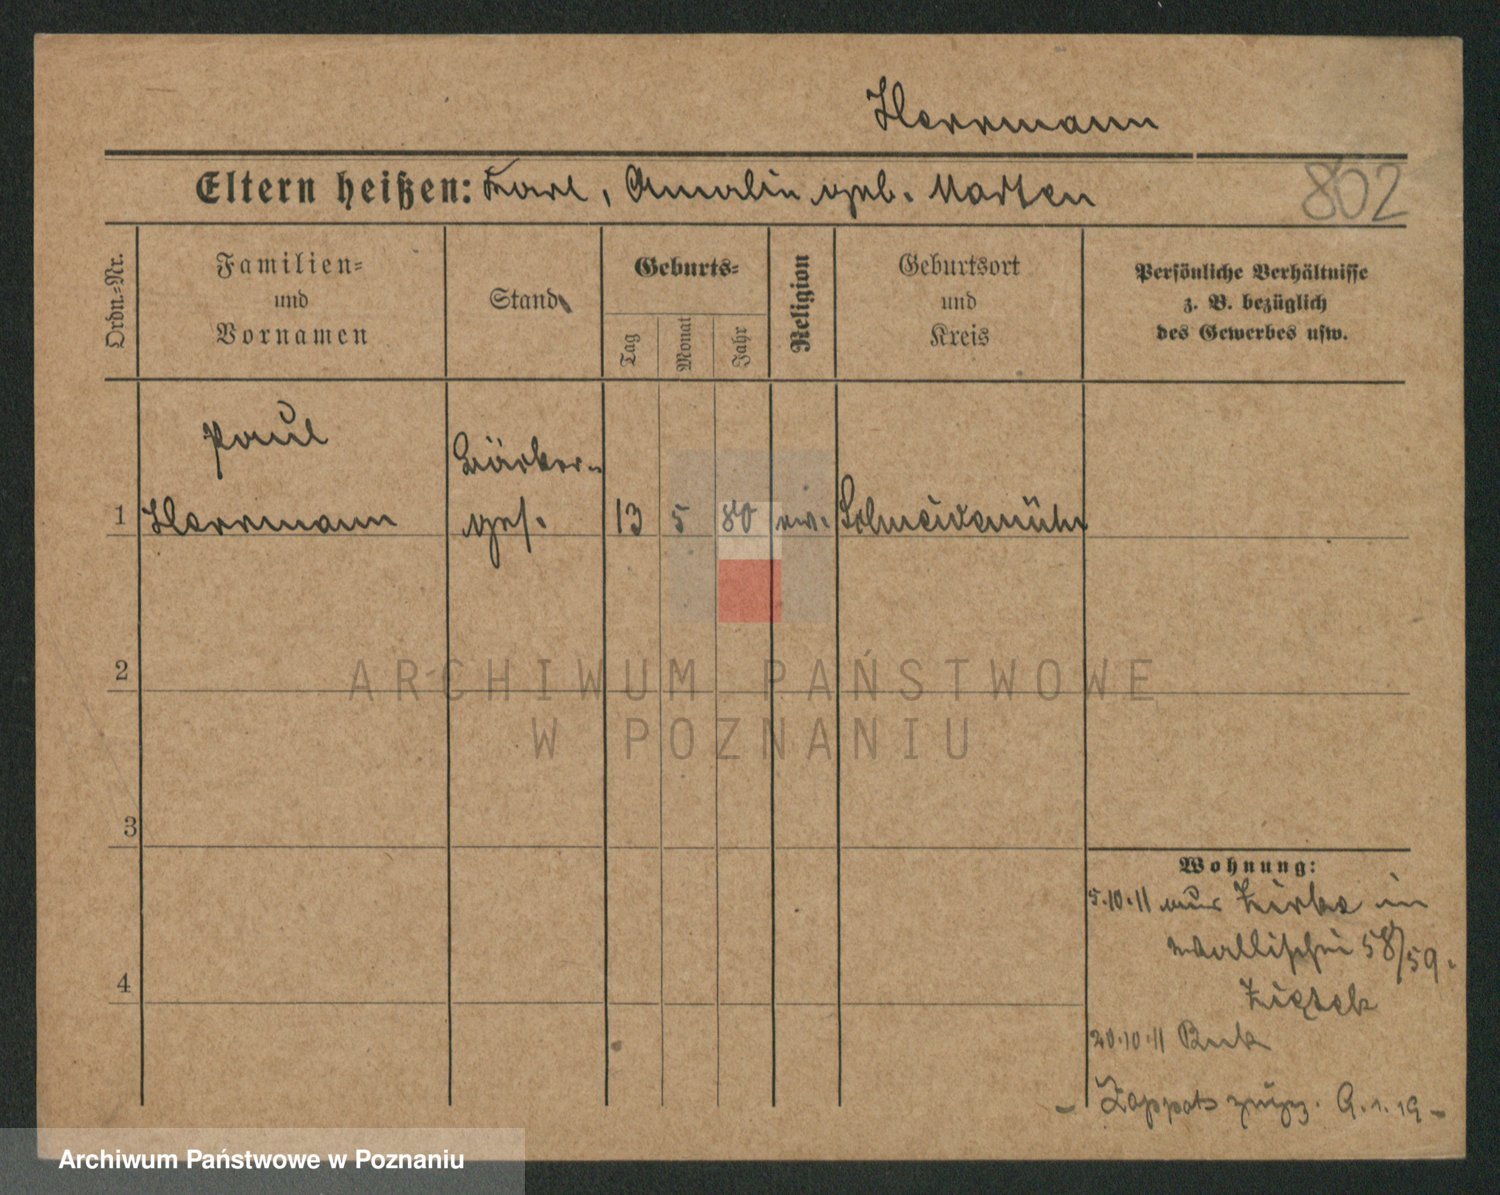 Herrmann
Eltern heißen: Karl, Amalie geb. Marten
802
Ordn.-Nr.
Familien-
und
Vornamen
Stand
Geburts-
Tag
Monat
Jahr
Religion
Geburtsort
und
Kreis
Persönliche Verhältnisse
z. B. bezüglich
des Gewerbes usw.
Paul
1 Herrmann
Bäcker-
ges.
13 5 80 ev. Schneidemühl
2
3
4
Wohnung:
5.10.11 aus Zirke in
Wallischei 58/59.
Ziętek
20.10.11 Buk
- Zoppot 9.1.19 -
ARCHIWUM PAŃSTWOWE
W POZNANIU
Archiwum Państwowe w Poznaniu